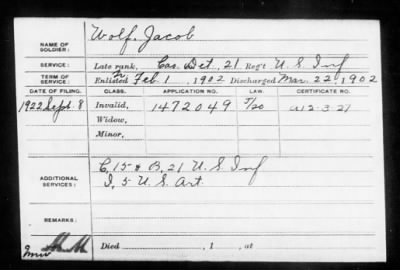 NAME OF SOLDIER: Wolf, Jacob
SERVICE: Late rank, Cas. Det. 21 Reg't U.S. Inf
TERM OF SERVICE: Enlisted Feb 1, 1902 Discharged Mar. 22, 1902
DATE OF FILING. CLASS. APPLICATION NO. LAW. CERTIFICATE NO.
1922 Sept. 8 Invalid, 1472049 5/20 a12-3-21
Widow,
Minor,
ADDITIONAL SERVICES: C, 15 & B, 21 U.S. Inf
I, 5 U.S. Art.
REMARKS:
Died , 1 , at